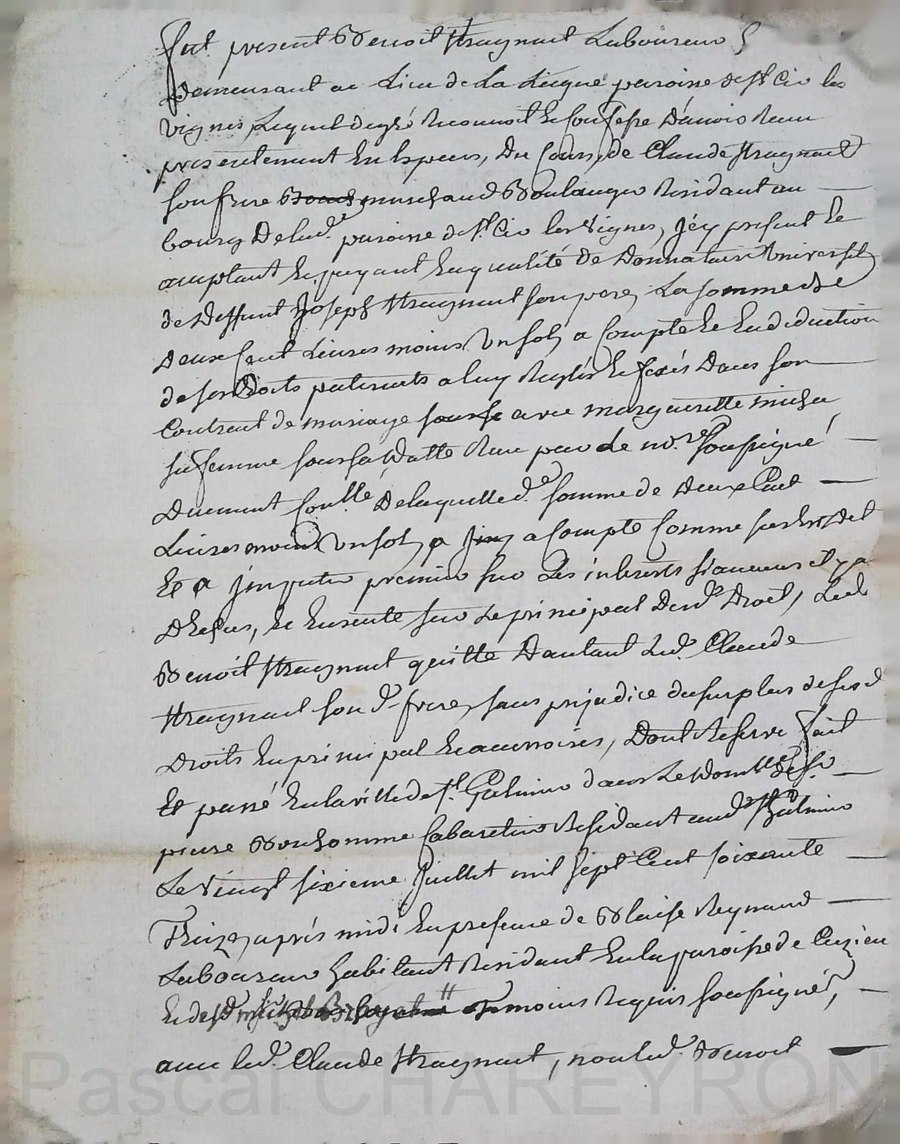 fut present Benoit Thaynaut Laboureur
Demeurant au Lieu de La Liegue paroisse de St Cir les
vignes, Lequel degré Reconnoit et Confesse D'avoir Receu
presentement En Especes, Du Cours, de Claude Thaynaut
son frere marchand Boulanger Residant au
bourg Delad. paroisse de St Cir les Vignes, Jcy present et
acceptant Et payant En qualité de Donnataire Universel
de deffunt Joseph Thaynaut son pere, La somme de
Deux Cent Livres moins Un sol, a Compte et En deduction
de ses Droits paternels a luy Reglés et fixés Dans son
Contrat de mariage avec margueritte
sa femme sous sa Datte Receu par de nore soussigné
Duement Conllé, De laquelle de somme de Deux Cent
Livres moins Un sol, a Compte Comme
Et a Jmputer premier sur Les interests si aucuns il y a
D'Echus, et Ensuite sur Le principal Desds Droits, Led
Benoit Thaynaut quitte D'autant Led. Claude
Thaynaut sond. frere, sans prejudice du surplus de sesd
Droits En principal Et accessoires, Dont Reserve fait
Et passé En la ville de St Galmier dans Le Domlle de sr
pierre Bonhomme Cabaretier Residant aud St Galmier
Le Vingt sixieme Juillet mil sept Cent soixante
Treize, aprés midi En presence de Blaise Reynaud
Laboureur habitant Residant En la paroisse de Cuzieu
Et de sr Temoins Requis soussignés,
avec led. Claude Thaynaut, non led. Benoit
Pascal CHAREYRON